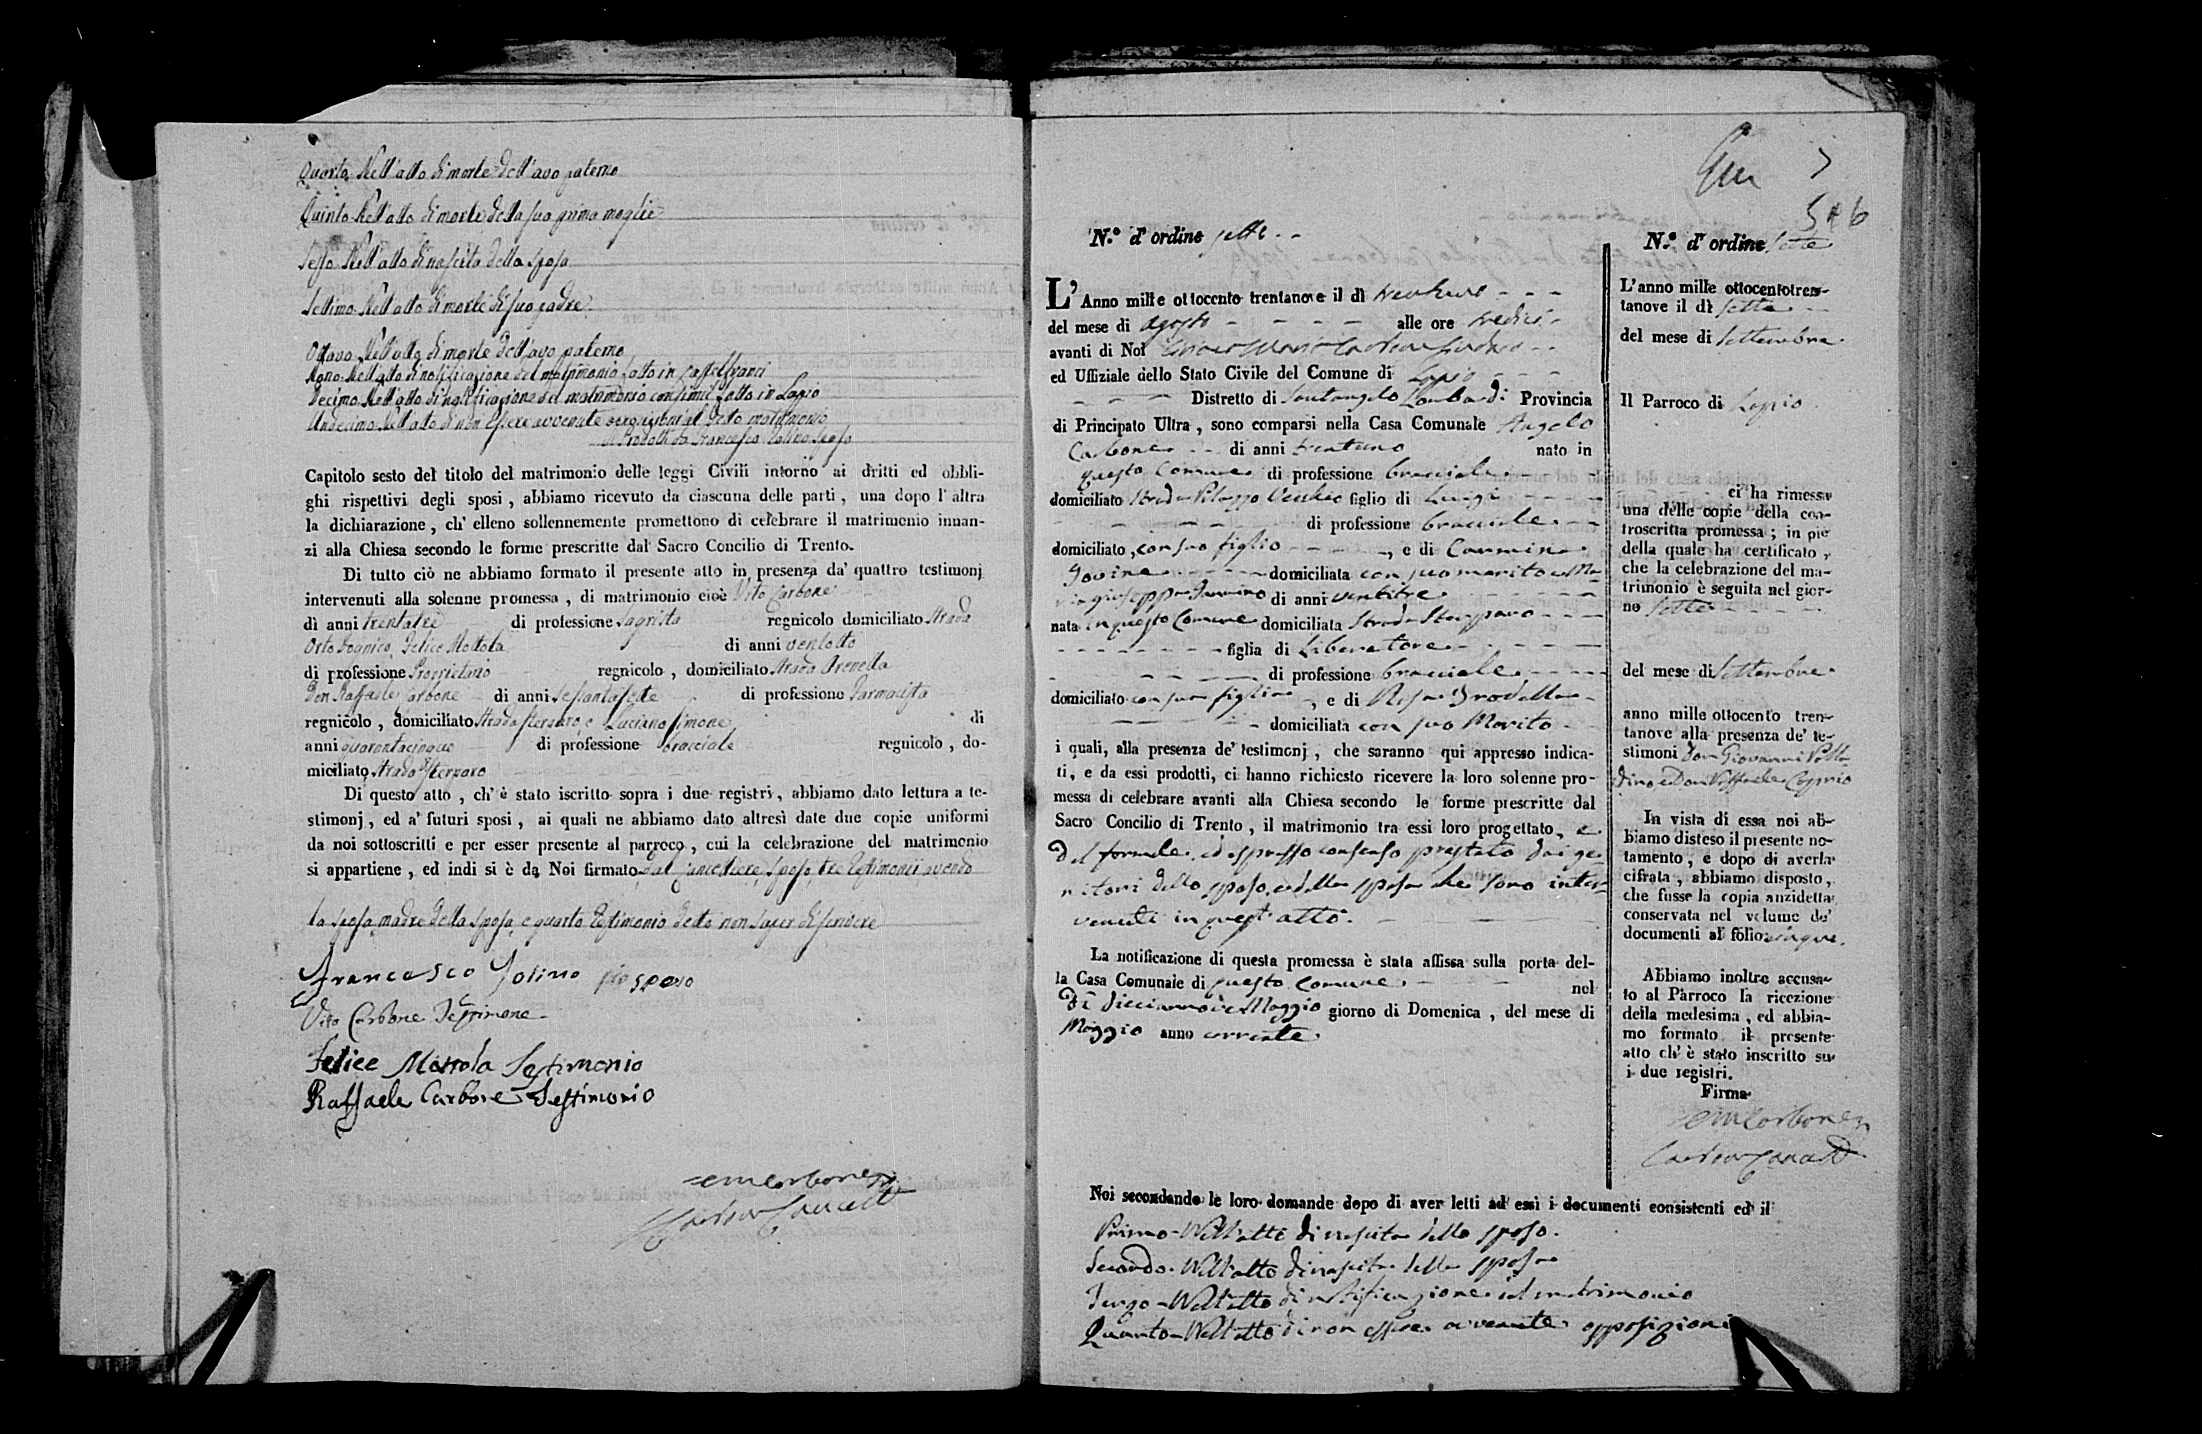 Quarto. Nell'atto di morte dell'avo paterno
Quinto. Nell'atto di morte della sua prima moglie
Sesto. Nell'atto di nascita della sposa
Settimo. Nell'atto di morte di suo padre
Ottavo. Nell'atto di morte dell'avo paterno
Nono. Nell'atto di notificazione del matrimonio fatto in Castelfranci
Decimo. Nell'atto di notificazione del matrimonio consimile fatto in Lapio
Undecimo. Nell'atto di non essere avvenute opposizioni al detto matrimonio
Prodotti da Francesco Jolino sposo
Capitolo sesto del titolo del matrimonio delle leggi Civili intorno ai dritti ed obbli-
ghi rispettivi degli sposi, abbiamo ricevuto da ciascuna delle parti, una dopo l'altra
la dichiarazione, ch'elleno sollennemente promettono di celebrare il matrimonio innan-
zi alla Chiesa secondo le forme prescritte dal Sacro Concilio di Trento.
Di tutto ciò ne abbiamo formato il presente atto in presenza da' quattro testimonj
intervenuti alla solenne promessa, di matrimonio cioè Vito Carbone
di anni trentatre di professione sagrista regnicolo domiciliato Strada
Orto Felice Mottola di anni ventotto
di professione Proprietario regnicolo, domiciliato Strada Arenella
Don Raffaele Carbone di anni sessantasette di professione Farmacista
regnicolo, domiciliato Strada Sterparo, e Luciano Simone di
anni quarantacinque di professione bracciale regnicolo, do-
miciliato Strada Sterparo
Di questo atto, ch'è stato iscritto sopra i due registri, abbiamo dato lettura a te-
stimonj, ed a' futuri sposi, ai quali ne abbiamo dato altresì date due copie uniformi
da noi sottoscritti e per esser presente al parroco, cui la celebrazione del matrimonio
si appartiene, ed indi si è da Noi firmato, dal Cancelliere, sposo, tre testimonii avendo
la sposa, madre della sposa, e quarto testimonio detto non saper di scrivere
Francesco Jolino sposo
Vito Carbone Testimone
Felice Mottola Testimonio
Raffaele Carbone Testimonio
Carbone
N.º d'ordine sette
L'Anno mille ottocento trentanove il di trentuno
del mese di agosto alle ore tredici
avanti di Noi
ed Uffiziale dello Stato Civile del Comune di Lapio
Distretto di Santangelo Lombardi Provincia
di Principato Ultra, sono comparsi nella Casa Comunale Angelo
Carbone di anni trentuno nato in
questo Comune di professione bracciale
domiciliato Strada Vecchio figlio di Luigi
di professione bracciale
domiciliato, con suo figlio, e di Carmina
Jovine domiciliata con suo marito e Ma-
ria Giuseppa di anni ventitre
nata in questo Comune domiciliata Strada Sterparo
figlia di Liberatore
di professione bracciale
domiciliato con sua figlia, e di Rosa
domiciliata con suo Marito
i quali, alla presenza de' testimonj, che saranno qui appresso indica-
ti, e da essi prodotti, ci hanno richiesto ricevere la loro solenne pro-
messa di celebrare avanti alla Chiesa secondo le forme prescritte dal
Sacro Concilio di Trento, il matrimonio tra essi loro progettato, e
del formale, ed espresso consenso prestato dai ge-
nitori dello sposo, e della sposa che sono inter-
venuti in quest'atto.
La notificazione di questa promessa è stata affissa sulla porta del-
la Casa Comunale di questo Comune nel
dì diciannove Maggio giorno di Domenica, del mese di
Maggio anno corrente
5 6
N.º d'ordine sette
L'anno mille ottocentotren-
tanove il dì sette
del mese di Settembre
Il Parroco di Lapio
ci ha rimessa
una delle copie della con-
troscritta promessa; in piè
della quale ha certificato,
che la celebrazione del ma-
trimonio è seguita nel gior-
no sette
del mese di Settembre
anno mille ottocento tren-
tanove alla presenza de' te-
stimoni Don Giovanni
e Don Raffaele Caprio
In vista di essa noi ab-
biamo disteso il presente no-
tamento, e dopo di averla
cifrata, abbiamo disposto,
che fusse la copia anzidetta
conservata nel volume de'
documenti al folio cinque.
Abbiamo inoltre accusa-
to al Parroco la ricezione
della medesima, ed abbia-
mo formato il presente
atto ch'è stato inscritto su
i due registri.
Firma
Carbone
Noi secondando le loro domande dopo di aver letti ad essi i documenti consistenti ed il
Primo - Nell'atto di nascita dello sposo.
Secondo - Nell'atto di nascita della sposa
Terzo - Nell'atto di notificazione del matrimonio
Quarto - Nell'atto di non essere avvenute opposizioni